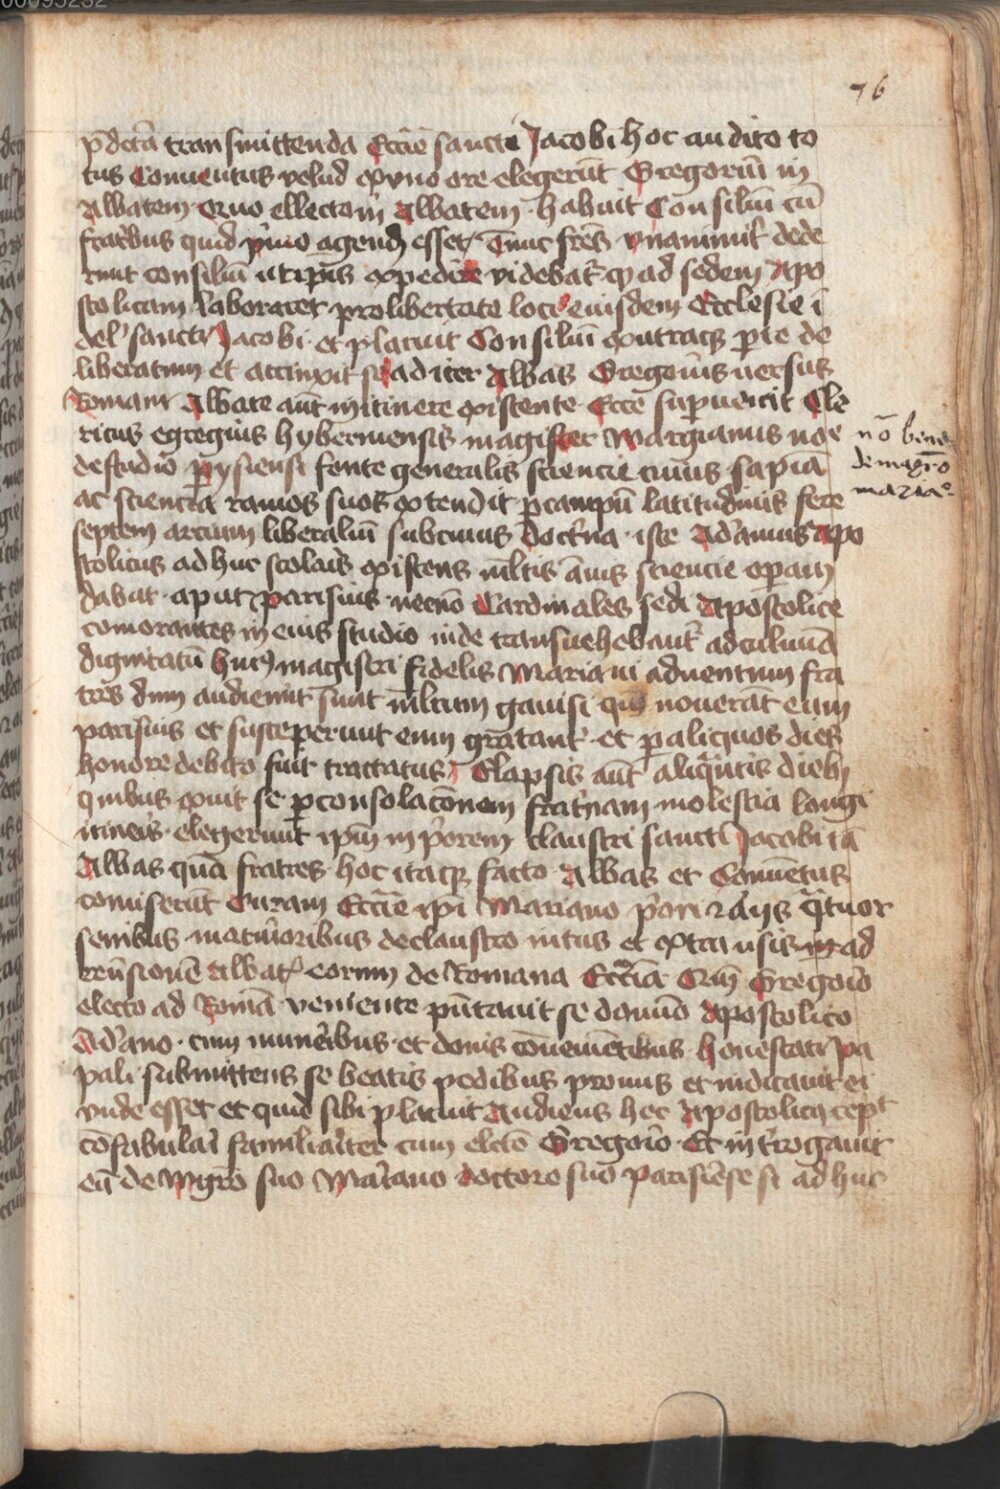 00095232
76
p̄dcta transmittenda Eccīe sancti Jacobi hoc audito to
tus Conuentus velud ex vno ore elegerūt Gregoriū in
Abbatem · Quo ellecto in Abbatem · habuit Consiliū cū
fratribus quid primo agend esset / Tunc frēs vnanimit̓ dede
runt consiliū ut ip̄ius expedire videbat̓ ꝙ ad sedem Apo
stolicam laboraret pro libertate loci eiusdem Ecclesie i
del' sancti Jacobi · et placuit Consiliū ex utraqꝫ pte de
liberatum et accinxit se ad iter Abbas Gregorius uersus
Romam Abbate aūt in itinere existente Ecce superuenit Cle
ricus egregius hyberniensis magister Margianus noe
de studio pysiensi fonte generalis sciencie cuius sapia
ac sciencia ramos suos extendit p campū latitudinis fere
septem arcium liberaliū sub cuius doct̓na · iste Adrianus apo
stolicus ad huc scolaris existens ml̄tis ānis sciencie operam
dabat · aput parisius · necnō Cardinales sedi Apostolice
comorantes in eius studio inde transuehebant̓ ad culmina
dignitatū huius magistri fidelis Mariani aduentum fra
tres dum audierunt sunt ml̄tum gauisi quia nouerāt eum
parisius et susceperunt eum gratant̓ · et p aliquos dies
honore debito fuit tractatus Elapsis aūt aliquātis dieb
quibus exuit se p consolacōnem frat̓nam molestia longi
itineris · elegerunt ipm̄ in p̓orem claustri sancti Jacobi tā
Abbas quā fratres · hoc itaqꝫ facto Abbas et Conuētus
comiserūt Curam Eccīe ipi Mariano p̓ori ⁊ alijs q̄tuor
senibus maturioribus de claustro intus et extra usis ad
reūsionē abbat̓ eorum de Romana Ecclīa Cum Gregorio
electo ad Romā veniente p̄ntauit se domīo Apostolico
Adriano · cum muneribus · et donis cōuenientibus honestati pa
pali submittens se beatis pedibus pronus et indicauit ei
vnde esset et quid sibi placuit Audiens hec Apostolicꝰ cepit
cōfabulari familiariter cum electo Gregorio · Et int̓rogauit
eū de Mgr̄o suo Mariano doctore suo parisiēse si ad huc
nō bene
de magr̄o
maria°